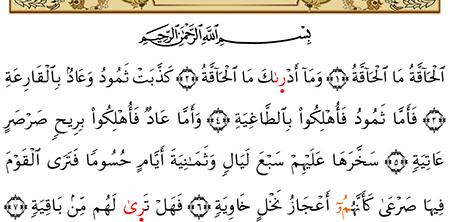 بِسْمِ ٱللَّهِ ٱلرَّحْمَٰنِ ٱلرَّحِيمِ
ٱلْحَآقَّةُ مَا ٱلْحَآقَّةُ ﴿١﴾ وَمَآ أَدْرِىٰكَ مَا ٱلْحَآقَّةُ ﴿٢﴾ كَذَّبَتْ ثَمُودُ وَعَادُۢ بِٱلْقَارِعَةِ
﴿٣﴾ فَأَمَّا ثَمُودُ فَأُهْلِكُواْ بِٱلطَّاغِيَةِ ﴿٤﴾ وَأَمَّا عَادٌ فَأُهْلِكُواْ بِرِيحٍ صَرْصَرٍ
عَاتِيَةٍ ﴿٥﴾ سَخَّرَهَا عَلَيْهِمْ سَبْعَ لَيَالٍ وَثَمَٰنِيَةَ أَيَّامٍ حُسُومًا فَتَرَى ٱلْقَوْمَ
فِيهَا صَرْعَىٰ كَأَنَّهُمُۥٓ أَعْجَازُ نَخْلٍ خَاوِيَةٍ ﴿٦﴾ فَهَلْ تَرِىٰ لَهُم مِّنۢ بَاقِيَةٍ ﴿٧﴾